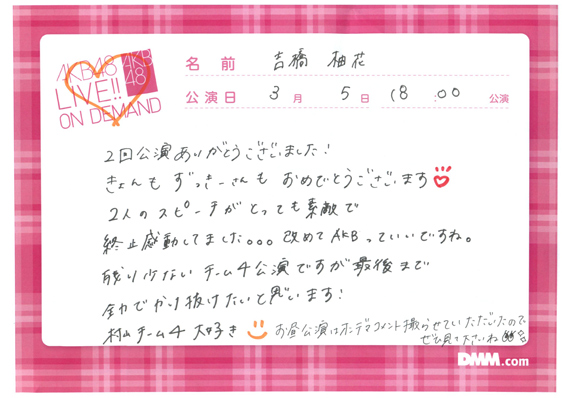 AKB48
LIVE!!
ON DEMAND
AKB
48
名 前 吉橋 柚花
公演日 3月 5日 18:00 公演
2回公演ありがとうございました!
きょんも ずっきーさんも おめでとうございます
2人のスピーチがとっても素敵で
終止感動してました。。。改めてAKBっていいですね。
残り少ない チーム4公演ですが最後まで
全力でかけ抜けたいと思います!
村山チーム4 大好き お昼公演はオンデマコメント撮らせていただいたので
ぜひ見て下さいね
DMM.com